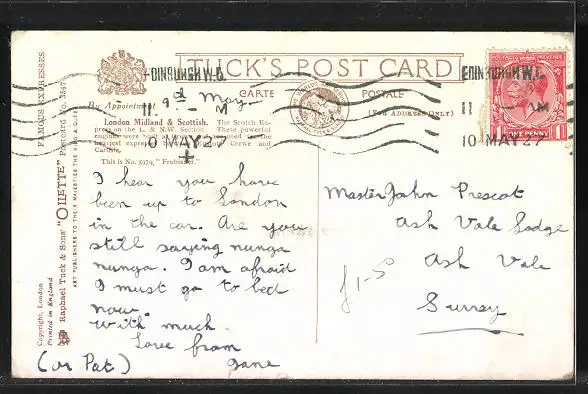 TUCK'S POST CARD
CARTE POSTALE
(FOR ADDRESS ONLY)
FAMOUS EXPRESSES
Raphael Tuck & Sons' "OILETTE" Postcard No. 3547
ART PUBLISHERS TO THEIR MAJESTIES THE KING & QUEEN
Copyright, London
Printed in England
By Appointment
London Midland & Scottish. The Scotch Ex-
press on the L. & N.W. Section. These powerful
Crewe and
Carlisle.
This is No. 5979, "Frobisher."
EDINBURGH W.C.
11 - AM
10 MAY 27
EDINBURGH W.C.
11 - AM
10 MAY 27
ONE PENNY
9th May
I hear you have
been up to London
in the car. Are you
still saying nunga
nunga. I am afraid
I must go to bed
now.
With much
Love from
(or Pat) Jane
Master John Prescot
Ash Vale Lodge
Ash Vale
Surrey